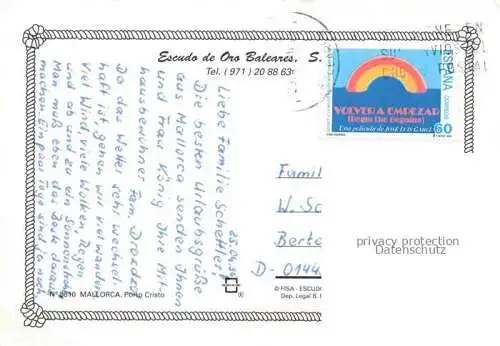 Escudo de Oro Baleares, S.
Tel. (971) 20 88 63
ESPAÑA
CORREOS
VOLVER A EMPEZAR
(Begin the Beguine)
Una película de JOSÉ LUIS GARCI
60
25.04.95
Liebe Familie Schöttler!
Die besten Urlaubsgrüße
aus Mallorca senden Ihnen
und Frau König Ihre Mit-
hausbewohner
Fam.
Da das Wetter sehr wechsel-
haft ist gehen wir viel wandern
Viel Wind, viele Wolken, Regen
und ab und zu ein Sonnenstrahl
Man muß eben das Beste daraus
machen. Ein paar Tage sind ja noch.
Famil
W. Sc
Berte
D-0144
privacy protection
Datenschutz
N° 8810 MALLORCA, Porto Cristo
®
© FISA - ESCUD
Dep. Legal B.